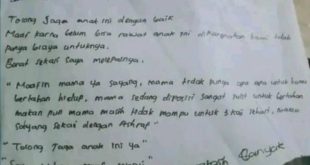 Tolong Jaga anak ini dengan baik
Maaf karna belum bisa rawat anak ini dikarnakan kami tidak
punya biaya untuknya.
Berat sekali saya melepasnya.
"Maafin mama ya sayang, mama tidak punya apa apa untuk kamu
bertahan hidup, mama sedang diposisi sangat sulit untuk bertahan
makan pun mama masih tidak mampu untuk 3 kali sehari,
sayang sekali dengan Ashraf"
"Tolong Jaga anak ini ya"